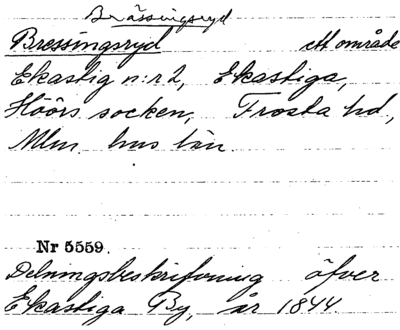 Brässingsryd
Bressingsryd ett område
Ekastig n:r 2, Ekastiga,
Höörs socken, Frosta hd,
Mlm. hus län.
Nr 5559.
Delningsbeskrifvning öfver
Ekastiga By, år 1844.